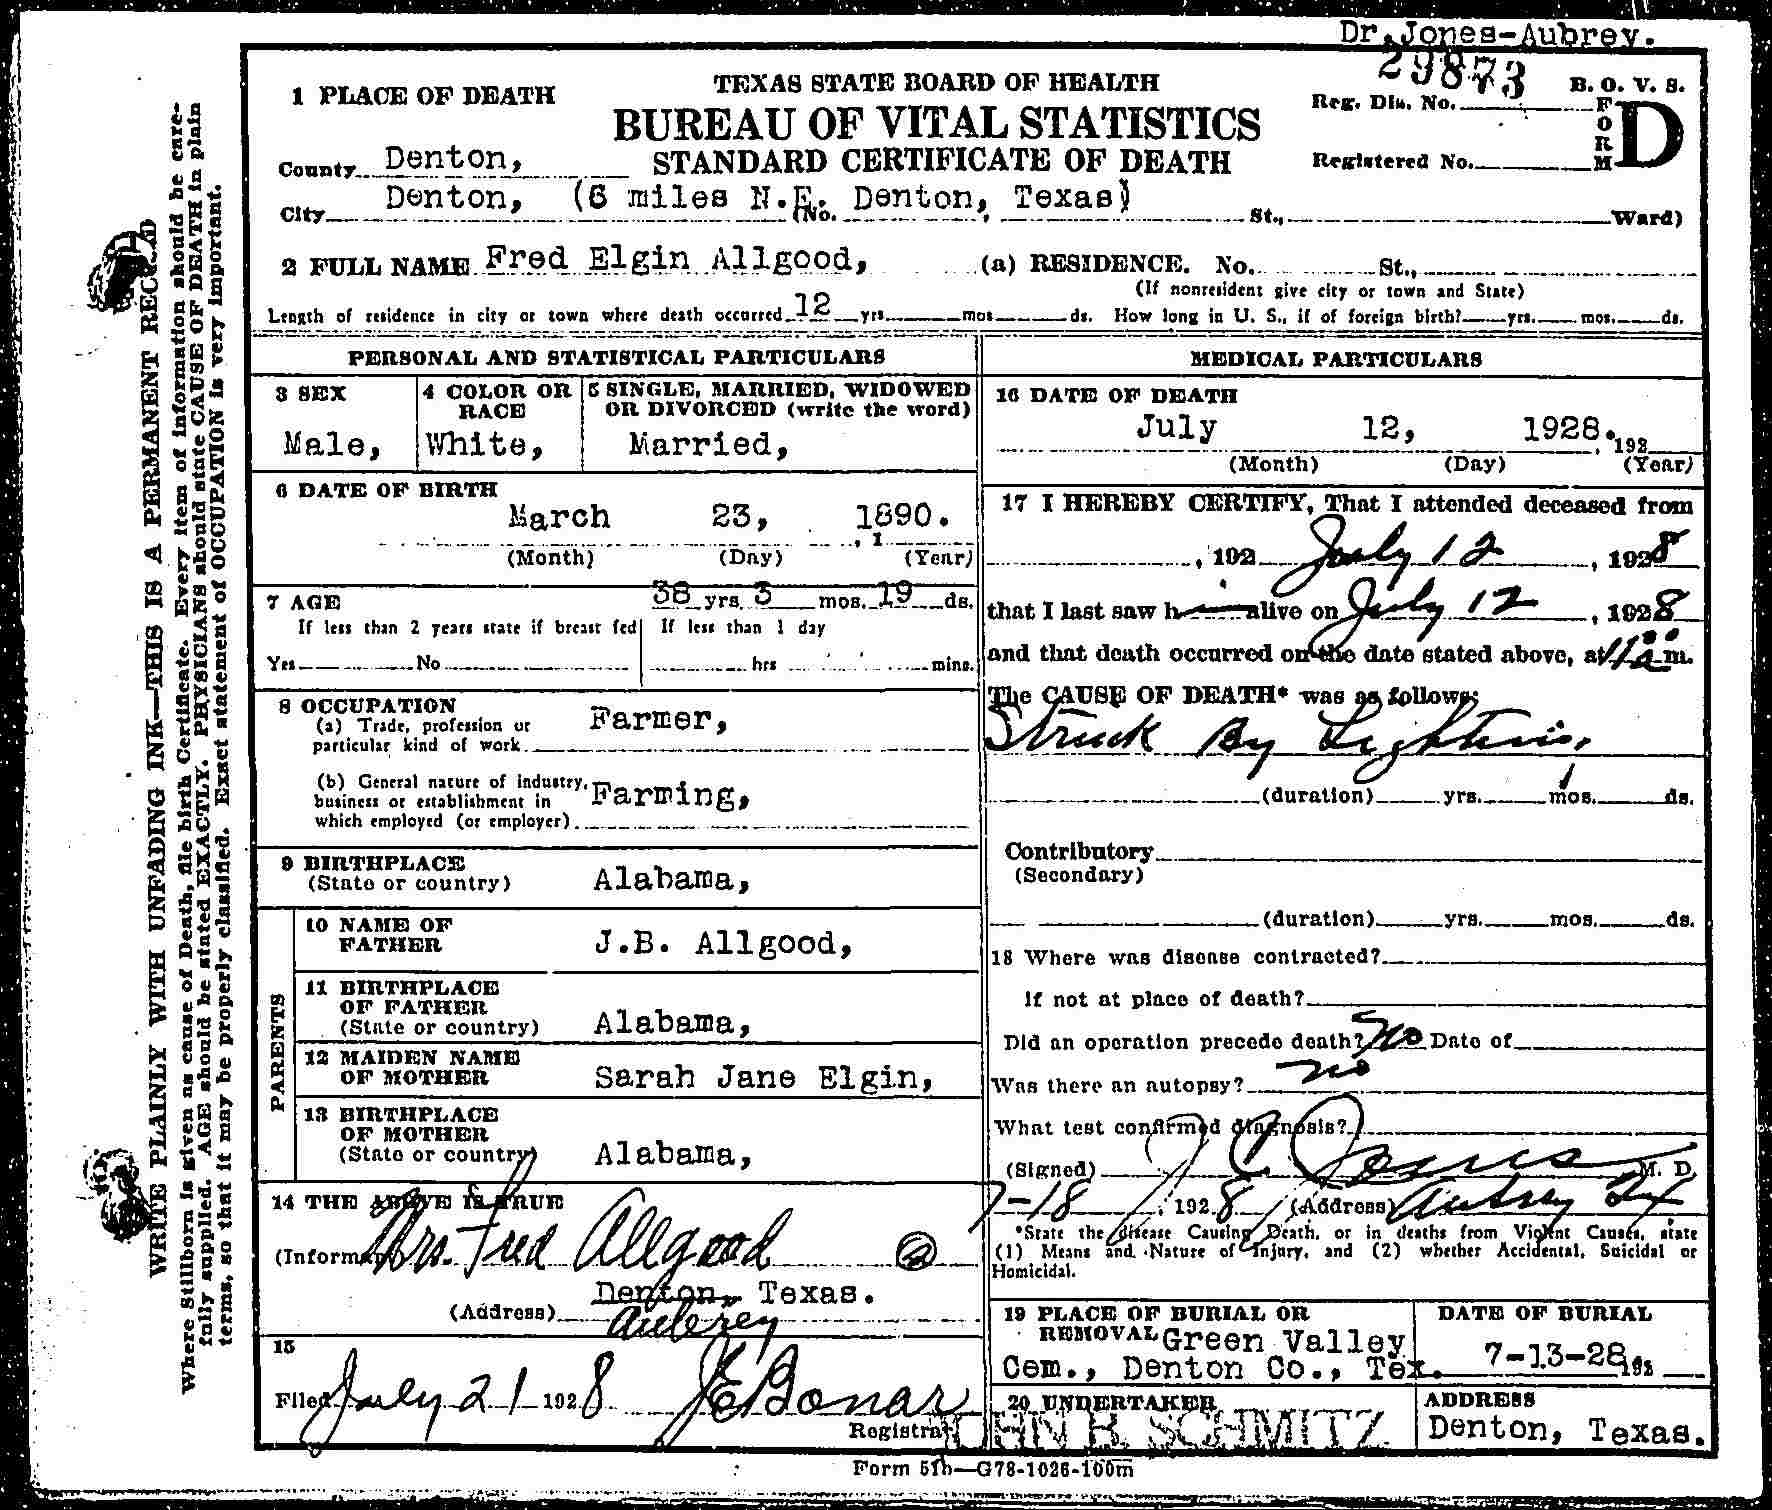 Dr.Jones-Aubrey.
29873
1 PLACE OF DEATH
TEXAS STATE BOARD OF HEALTH
BUREAU OF VITAL STATISTICS
STANDARD CERTIFICATE OF DEATH
Reg. Dis. No.
Registered No.
B. O. V. S.
FORM D
County Denton,
City Denton, (6 miles N.E. Denton, Texas)
(No. St., Ward)
2 FULL NAME Fred Elgin Allgood, (a) RESIDENCE. No. St.,
(If nonresident give city or town and State)
Length of residence in city or town where death occurred 12 yrs. mos. ds. How long in U. S., if of foreign birth? yrs. mos. ds.
PERSONAL AND STATISTICAL PARTICULARS
3 SEX
Male,
4 COLOR OR RACE
White,
5 SINGLE, MARRIED, WIDOWED
OR DIVORCED (write the word)
Married,
6 DATE OF BIRTH
March 23, 1890.
, 1
(Month) (Day) (Year)
7 AGE 38 yrs. 3 mos. 19 ds.
If less than 2 years state if breast fed
Yes No
If less than 1 day
hrs mins.
8 OCCUPATION
(a) Trade, profession or
particular kind of work Farmer,
(b) General nature of industry,
business or establishment in
which employed (or employer) Farming,
9 BIRTHPLACE
(State or country) Alabama,
PARENTS
10 NAME OF
FATHER J.B. Allgood,
11 BIRTHPLACE
OF FATHER
(State or country) Alabama,
12 MAIDEN NAME
OF MOTHER Sarah Jane Elgin,
13 BIRTHPLACE
OF MOTHER
(State or country) Alabama,
14 THE ABOVE IS TRUE
(Informant) Mrs. Fred Allgood
Denton, Texas.
(Address) Aubrey
15
Filed July 21 1928 J E Bonar
Registrar
MEDICAL PARTICULARS
16 DATE OF DEATH
July 12, 1928. 192
(Month) (Day) (Year)
17 I HEREBY CERTIFY, That I attended deceased from
, 192 July 12, 1928
that I last saw him alive on July 12, 1928
and that death occurred on the date stated above, at 11 00 a m.
The CAUSE OF DEATH* was as follows:
Struck By Lightning
(duration) yrs. mos. ds.
Contributory
(Secondary)
(duration) yrs. mos. ds.
18 Where was disease contracted?
If not at place of death?
Did an operation precede death? No Date of
Was there an autopsy? no
What test confirmed diagnosis?
(Signed) J C Jones M. D.
7-18, 1928 (Address) Aubrey Tx
*State the disease Causing Death, or in deaths from Violent Causes, state
(1) Means and Nature of Injury, and (2) whether Accidental, Suicidal or
Homicidal.
19 PLACE OF BURIAL OR
REMOVAL Green Valley
Cem., Denton Co., Tex.
DATE OF BURIAL
7-13-28, 192
20 UNDERTAKER
JOHN B. SCHMITZ
ADDRESS
Denton, Texas.
Form 51b—G78-1026-100m
WRITE PLAINLY WITH UNFADING INK—THIS IS A PERMANENT RECORD
Where Stillborn is given as cause of Death, file birth Certificate. Every item of information should be care-
fully supplied. AGE should be stated EXACTLY. PHYSICIANS should state CAUSE OF DEATH in plain
terms, so that it may be properly classified. Exact statement of OCCUPATION is very important.